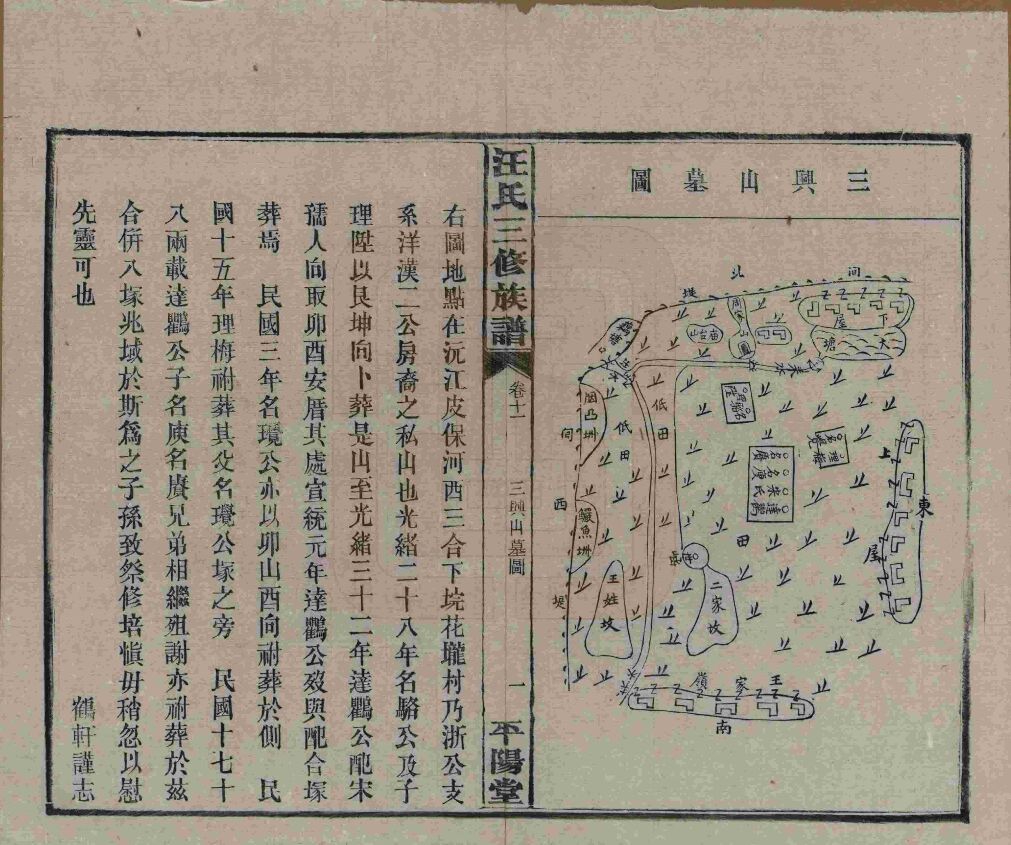 三興山墓圖
北
河
堤
下
屋
大
塘
低
田
低
田
西
堤
田
上
屋
東
二家坟
王姓坟
王家嶺
南
汪氏三修族譜
卷十一
三興山墓圖
一
平陽堂
右圖地點在沅江皮保河西三合下垸花壠村乃浙公支
系洋漢二公房裔之私山也光緒二十八年名駱公及子
理陞以艮坤向卜葬是山至光緒三十二年達鸜公配宋
孺人向取卯酉安厝其處宣統元年達鸜公歿與配合塚
葬焉　民國三年名瓊公亦以卯山酉向祔葬於側　民
國十五年理梅祔葬其父名瓊公塚之旁　民國十七十
八兩載達鸜公子名庾名賡兄弟相繼殂謝亦祔葬於茲
合併八塚兆域於斯為之子孫致祭修培慎毋稍忽以慰
先靈可也　鶴軒謹志